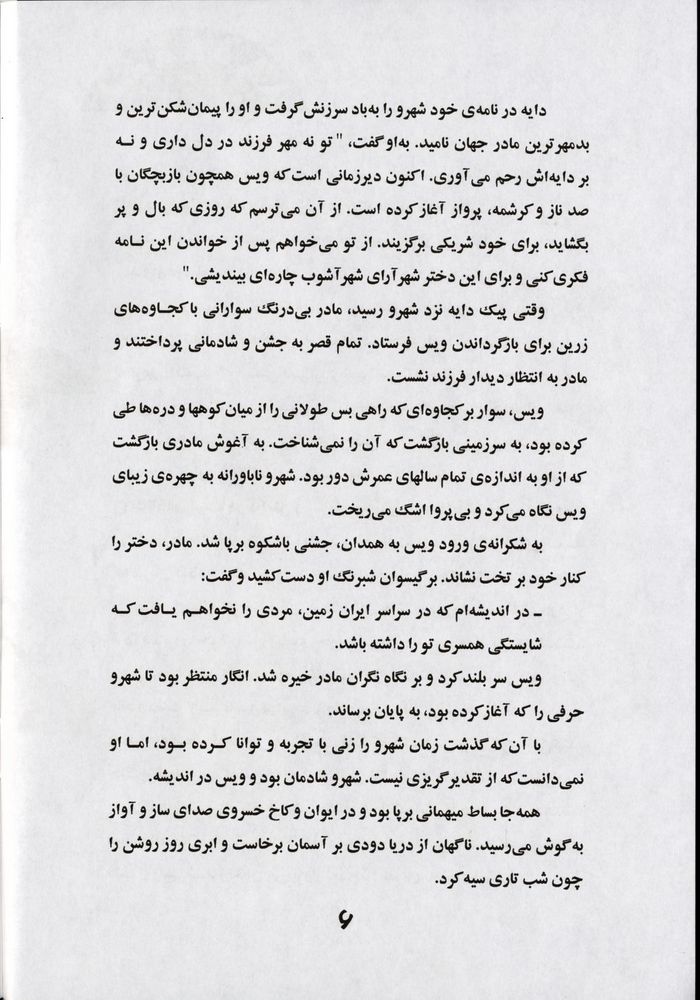 دایه در نامه‌ی خود شهرو را به‌باد سرزنش گرفت و او را پیمان‌شکن‌ترین و
بدمهرترین مادر جهان نامید. به‌او گفت، " تو نه مهر فرزند در دل داری و نـه
بر دایه‌اش رحم می‌آوری. اکنون دیرزمانی است که ویس همچون بازبچگان با
صد ناز و کرشمه، پرواز آغاز کرده است. از آن می‌ترسم که روزی که بال و پر
بگشاید، برای خود شریکی برگزیند. از تو می‌خواهم پس از خواندن این نـامه
فکری کنی و برای این دختر شهرآرای شهرآشوب چاره‌ای بیندیشی."
وقتی پیک دایه نزد شهرو رسید، مادر بی‌درنگ سوارانی با کجـاوه‌های
زرین برای بازگرداندن ویس فرستاد. تمام قصر به جشن و شادمانی پرداختند و
مادر به انتظار دیدار فرزند نشست.
ویس، سوار بر کجاوه‌ای که راهی بس طولانی را از میان کوهها و دره‌ها طی
کرده بود، به سرزمینی بازگشت که آن را نمی‌شناخت. به آغوش مادری بازگشت
که از او به اندازه‌ی تمام سالهای عمرش دور بود. شهرو ناباورانه به چهره‌ی زیبای
ویس نگاه می‌کرد و بی‌پروا اشگ می‌ریخت.
به شکرانه‌ی ورود ویس به همدان، جشنی باشکوه برپا شد. مادر، دختر را
کنار خود بر تخت نشاند. بر گیسوان شبرنگ او دست کشید و گفت:
ـ در اندیشه‌ام که در سراسر ایران زمین، مردی را نخواهـم یـافت کـه
شایستگی همسری تو را داشته باشد.
ویس سر بلند کرد و بر نگاه نگران مادر خیره شد. انگار منتظر بود تا شهرو
حرفی را که آغاز کرده بود، به پایان برساند.
با آن که گذشت زمان شهرو را زنی با تجربه و توانا کـرده بـود، امـا او
نمی‌دانست که از تقدیر گریزی نیست. شهرو شادمان بود و ویس در اندیشه.
همه‌جا بساط میهمانی برپا بود و در ایوان و کاخ خسروی صدای ساز و آواز
به گوش می‌رسید. ناگهان از دریا دودی بر آسمان برخاست و ابری روز روشن را
چون شب تاری سیه کرد.
۶